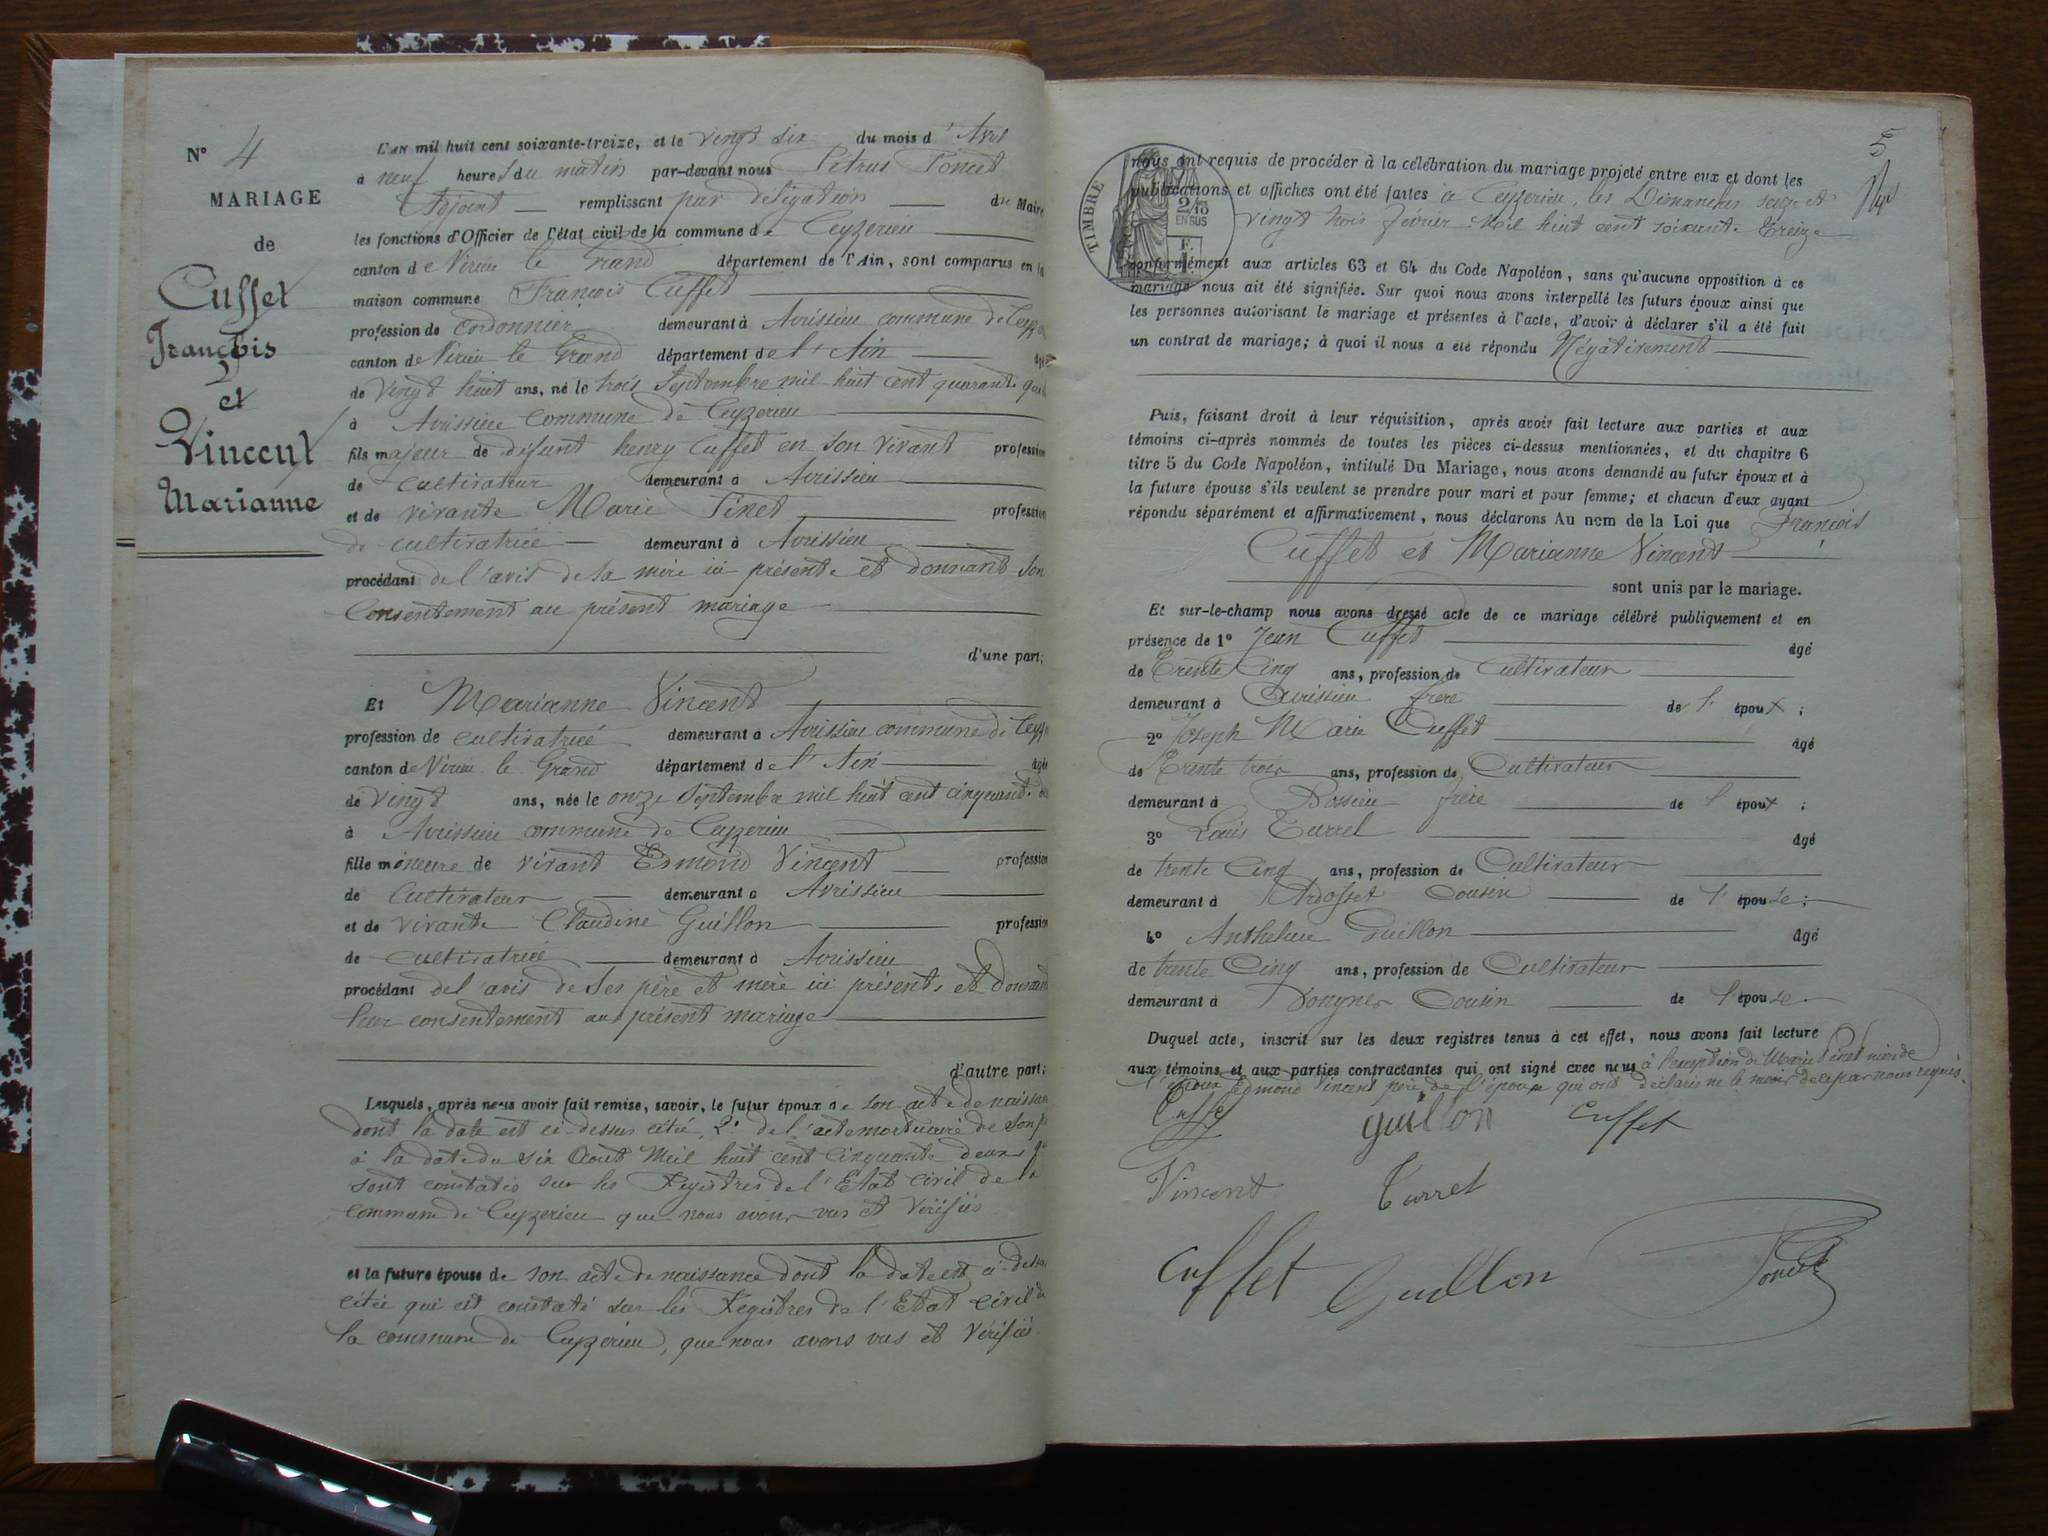 N° 4
MARIAGE
de
Cuffet
François
et
Vincent
Marianne
L'an mil huit cent soixante-treize, et le vingt six du mois d'Avril
à neuf heures du matin par-devant nous Petrus Poncet
Adjoint remplissant par délégation du Maire
les fonctions d'Officier de l'état civil de la commune de Ceyzerieu
canton de Virieu le Grand département de l'Ain, sont comparus en la
maison commune François Cuffet
profession de cordonnier demeurant à Avrissieu commune de Ceyz
canton de Virieu le Grand département de l'Ain âgé
de vingt huit ans, né le trois Septembre mil huit cent quarante qua
à Avrissieu commune de Ceyzerieu
fils majeur de défunt henry Cuffet en son vivant profession
de cultivateur demeurant à Avrissieu
et de vivante Marie Pinet profession
de cultivatrice demeurant à Avrissieu
procédant de l'avis de sa mère ici présente et donnant son
Consentement au présent mariage
d'une part;
Et Marianne Vincent
profession de cultivatrice demeurant à Avrissieu commune de Ceyz
canton de Virieu le Grand département de l'Ain âgée
de vingt ans, née le onze Septembre mil huit cent cinquante
à Avrissieu commune de Ceyzerieu
fille mineure de vivant Edmond Vincent profession
de Cultivateur demeurant à Avrissieu
et de vivante Claudine Guillon profession
de cultivatrice demeurant à Avrissieu
procédant de l'avis de ses père et mère ici présents et donnant
leur consentement au présent mariage
d'autre part;
Lesquels, après nous avoir fait remise, savoir, le futur époux de son acte de naissan
dont la date est ci-dessus citée, 2° de l'acte mortuaire de son p
à la date du six Août Mil huit cent cinquante deux q
sont constatés sur les Registres de l'Etat civil de la
commune de Ceyzerieu que nous avons vus et vérifiés
et la future épouse de son acte de naissance dont la date est ci-dessus
citée qui est constaté sur les Registres de l'Etat civil de
la commune de Ceyzerieu, que nous avons vus et vérifiés
5
TIMBRE
2/10
EN SUS
F.
1
nous ont requis de procéder à la célébration du mariage projeté entre eux et dont les
publications et affiches ont été faites à Ceyzerieu, les Dimanches seize et
vingt trois février Mil huit cent soixante Treize
conformément aux articles 63 et 64 du Code Napoléon, sans qu'aucune opposition à ce
mariage nous ait été signifiée. Sur quoi nous avons interpellé les futurs époux ainsi que
les personnes autorisant le mariage et présentes à l'acte, d'avoir à déclarer s'il a été fait
un contrat de mariage; à quoi il nous a été répondu Négativement
Puis, faisant droit à leur réquisition, après avoir fait lecture aux parties et aux
témoins ci-après nommés de toutes les pièces ci-dessus mentionnées, et du chapitre 6
titre 5 du Code Napoléon, intitulé Du Mariage, nous avons demandé au futur époux et à
la future épouse s'ils veulent se prendre pour mari et pour femme; et chacun d'eux ayant
répondu séparément et affirmativement, nous déclarons Au nom de la Loi que François
Cuffet et Marianne Vincent
sont unis par le mariage.
Et sur-le-champ nous avons dressé acte de ce mariage célébré publiquement et en
présence de 1° Jean Cuffet âgé
de Trente Cinq ans, profession de Cultivateur
demeurant à Avrissieu frère de l'époux;
2° Joseph Marie Cuffet âgé
de Trente trois ans, profession de Cultivateur
demeurant à Bossieu frère de l'époux;
3° Louis Turrel âgé
de trente Cinq ans, profession de Cultivateur
demeurant à Ardosset Cousin de l'épouse;
4° Anthelme Guillon âgé
de trente Cinq ans, profession de Cultivateur
demeurant à Vongnes Cousin de l'épouse.
Duquel acte, inscrit sur les deux registres tenus à cet effet, nous avons fait lecture
aux témoins et aux parties contractantes qui ont signé avec nous à l'exception de Marie Pinet mère de
l'époux Edmond Vincent père de l'épouse qui ont déclaré ne le savoir de ce par nous requis.
Cuffet guillon Cuffet
Vincent Turrel
Cuffet Guillon Poncet